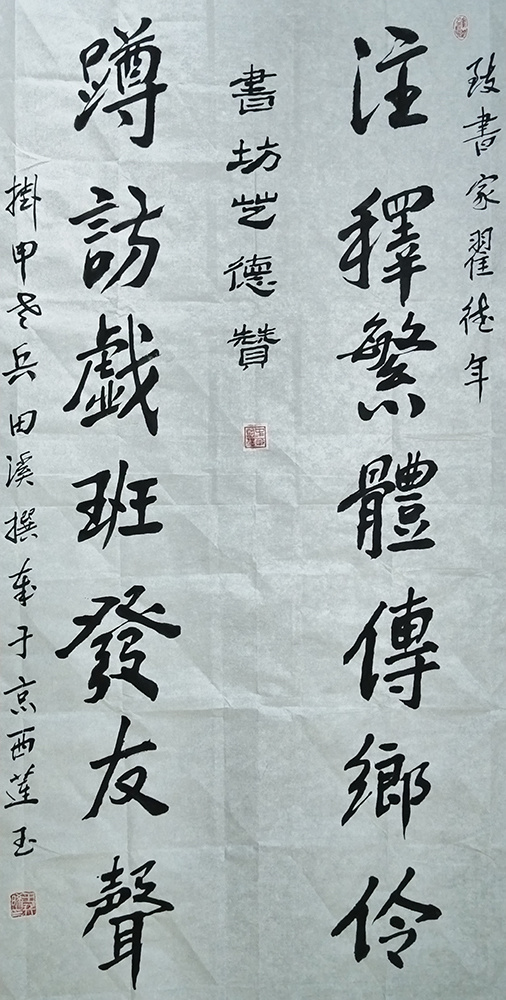 致書家翟德年
注釋繁體傳鄉伶
書坊芝德贊
蹲訪戲班發友聲
掛甲老兵田溪撰奉于京西蓮玉